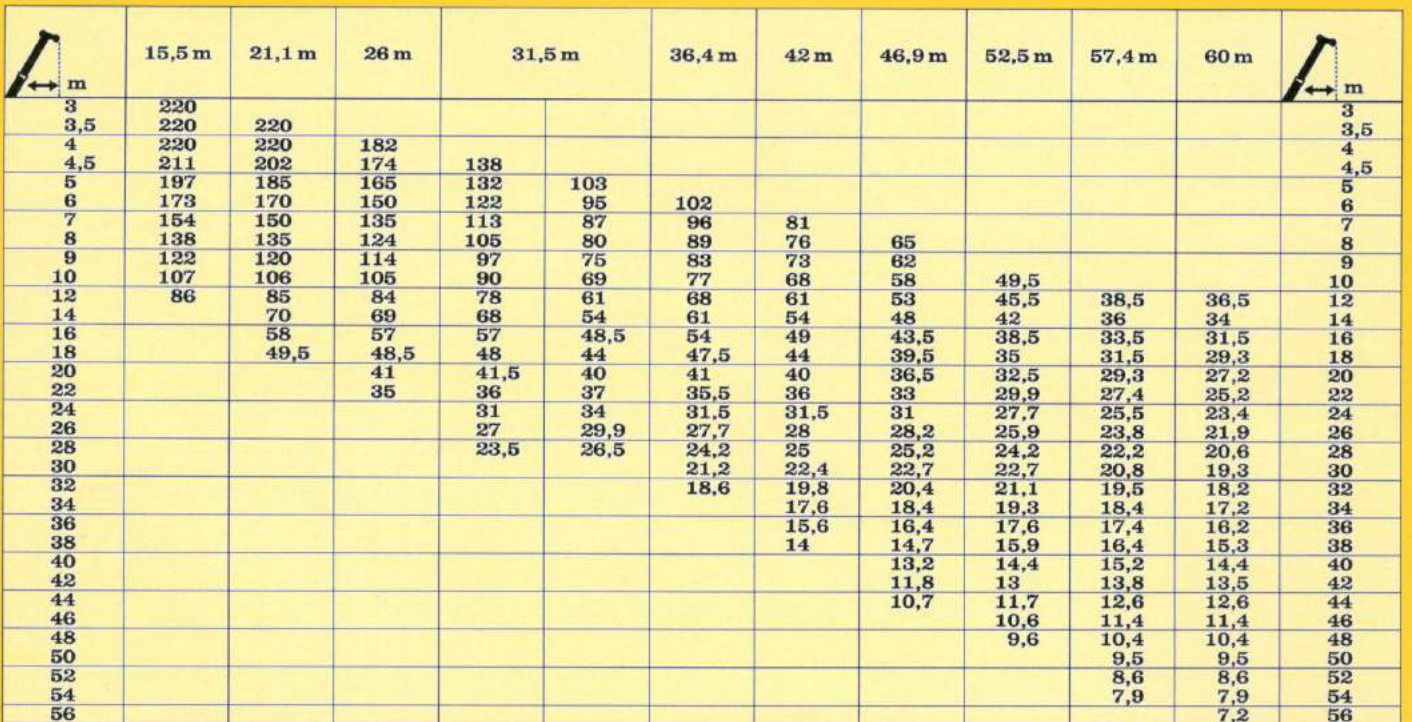 m 15,5 m 21,1 m 26 m 31,5 m 36,4 m 42 m 46,9 m 52,5 m 57,4 m 60 m m
3 220 3
3,5 220 220 3,5
4 220 220 182 4
4,5 211 202 174 138 4,5
5 197 185 165 132 103 5
6 173 170 150 122 95 102 6
7 154 150 135 113 87 96 81 7
8 138 135 124 105 80 89 76 65 8
9 122 120 114 97 75 83 73 62 9
10 107 106 105 90 69 77 68 58 49,5 10
12 86 85 84 78 61 68 61 53 45,5 38,5 36,5 12
14 70 69 68 54 61 54 48 42 36 34 14
16 58 57 57 48,5 54 49 43,5 38,5 33,5 31,5 16
18 49,5 48,5 48 44 47,5 44 39,5 35 31,5 29,3 18
20 41 41,5 40 41 40 36,5 32,5 29,3 27,2 20
22 35 36 37 35,5 36 33 29,9 27,4 25,2 22
24 31 34 31,5 31,5 31 27,7 25,5 23,4 24
26 27 29,9 27,7 28 28,2 25,9 23,8 21,9 26
28 23,5 26,5 24,2 25 25,2 24,2 22,2 20,6 28
30 21,2 22,4 22,7 22,7 20,8 19,3 30
32 18,6 19,8 20,4 21,1 19,5 18,2 32
34 17,6 18,4 19,3 18,4 17,2 34
36 15,6 16,4 17,6 17,4 16,2 36
38 14 14,7 15,9 16,4 15,3 38
40 13,2 14,4 15,2 14,4 40
42 11,8 13 13,8 13,5 42
44 10,7 11,7 12,6 12,6 44
46 10,6 11,4 11,4 46
48 9,6 10,4 10,4 48
50 9,5 9,5 50
52 8,6 8,6 52
54 7,9 7,9 54
56 7,2 56